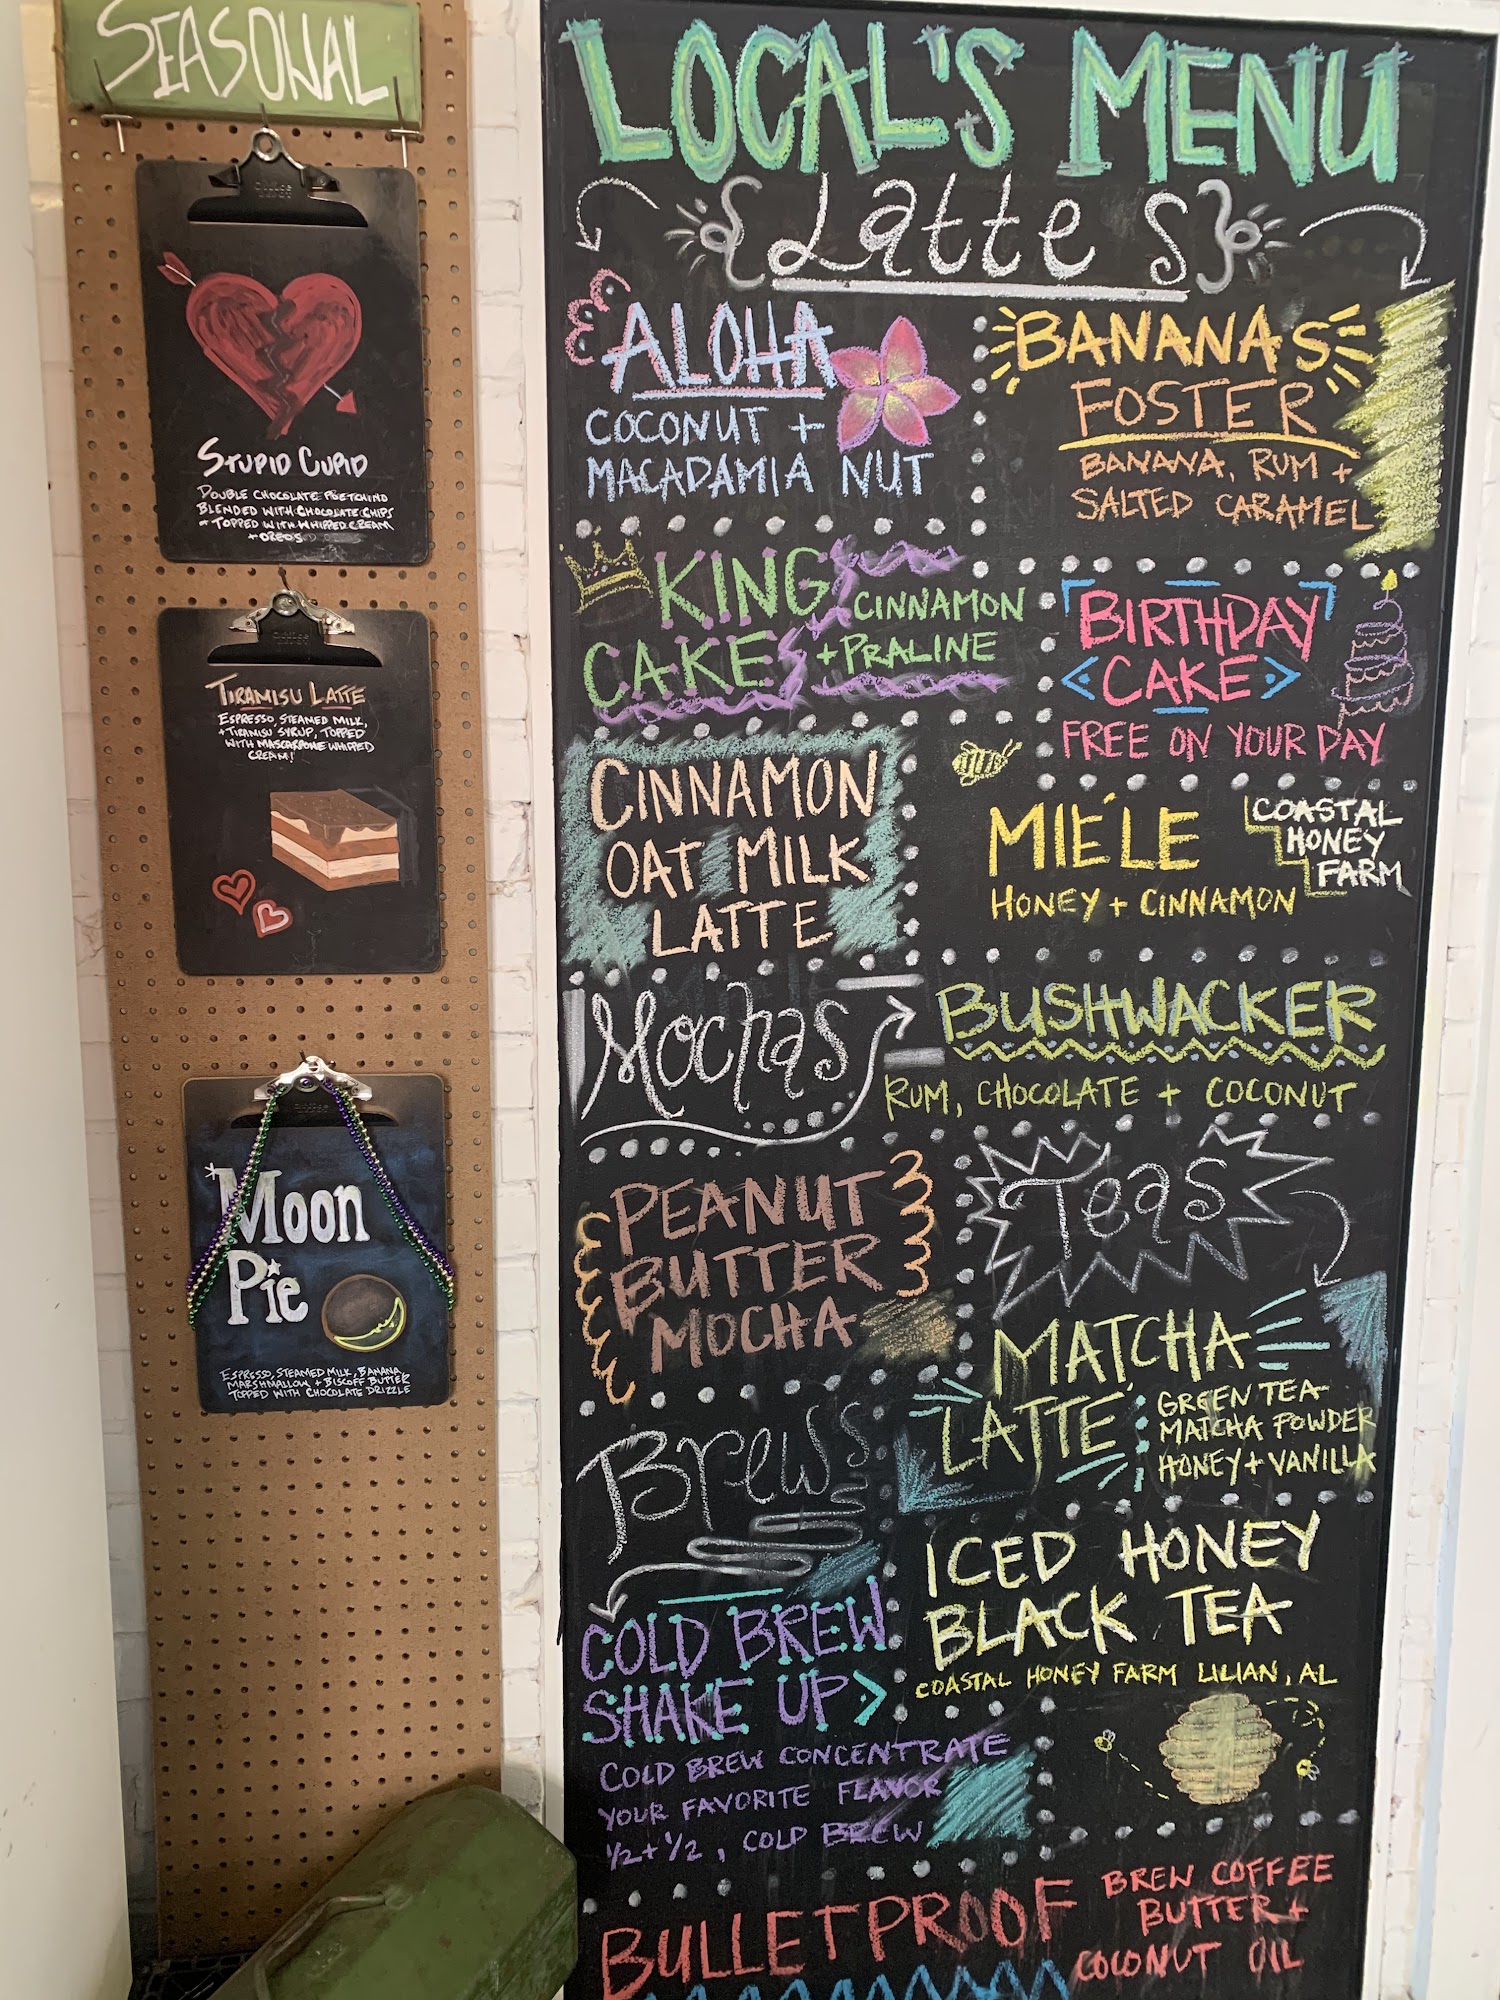 SEASONAL
STUPID CUPID
DOUBLE CHOCOLATE
BLENDED WITH CHOCOLATE CHIPS
TOPPED WITH WHIPPED CREAM
+ OREOS
TIRAMISU LATTE
ESPRESSO, STEAMED MILK,
+ TIRAMISU SYRUP, TOPPED
WITH MASCARPONE WHIPPED
CREAM!
MOON
PIE
ESPRESSO, STEAMED MILK, BANANA
MARSHMALLOW + BISCOFF BUTTER
TOPPED WITH CHOCOLATE DRIZZLE
LOCAL'S MENU
{Lattes}
ALOHA
COCONUT +
MACADAMIA NUT
BANANAS
FOSTER
BANANA, RUM +
SALTED CARAMEL
KING
CAKE
CINNAMON
+ PRALINE
BIRTHDAY
CAKE
FREE ON YOUR DAY
CINNAMON
OAT MILK
LATTE
MIÉLE
HONEY + CINNAMON
COASTAL
HONEY
FARM
Mochas
BUSHWACKER
RUM, CHOCOLATE + COCONUT
PEANUT
BUTTER
MOCHA
Teas
MATCHA
LATTE
GREEN TEA
MATCHA POWDER
HONEY + VANILLA
Brews
ICED HONEY
BLACK TEA
COASTAL HONEY FARM LILIAN, AL
COLD BREW
SHAKE UP >
COLD BREW CONCENTRATE
YOUR FAVORITE FLAVOR
1/2 + 1/2, COLD BREW
BULLETPROOF
BREW COFFEE
BUTTER +
COCONUT OIL